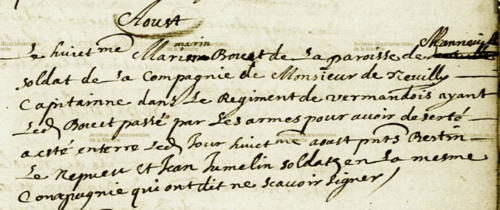 Aoust
Le huict me Marin marin Bouet de La paroisse de Manneuil
soldat de La Compagnie de Monsieur de Neuilly
Capitainne dans Le Regiment de vermandois ayant
Led Bouet passé par Les armes pour avoir deserté
a esté enterré Led Jour huict me aoust pnts Bestin
Le Nepueu Et Jean Jumelin soldatz en La mesme
Compagnie qui ont dit ne scavoir signer